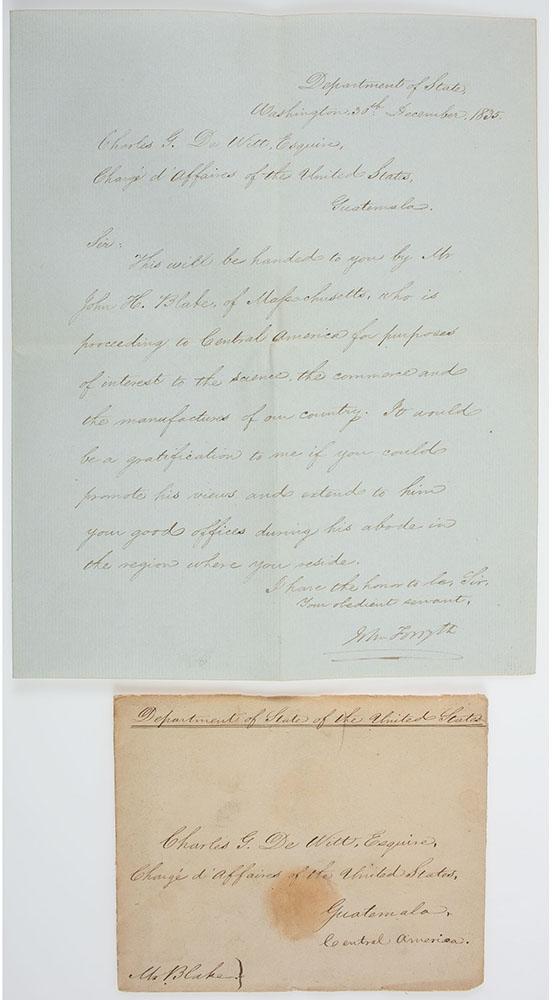 Department of State,
Washington, 30th December, 1835.
Charles G. De Witt, Esquire,
Chargé d'Affaires of the United States,
Guatemala.
Sir:
This will be handed to you by Mr
John H. Blake, of Massachusetts, who is
proceeding to Central America for purposes
of interest to the science, the commerce and
the manufactures of our country. It would
be a gratification to me if you could
promote his views and extend to him
your good offices during his abode in
the region where you reside.
I have the honor to be, Sir,
Your obedient servant,
John Forsyth
Department of State of the United States
Charles G. De Witt, Esquire,
Chargé d'Affaires of the United States,
Guatemala,
Central America.
Mr Blake}